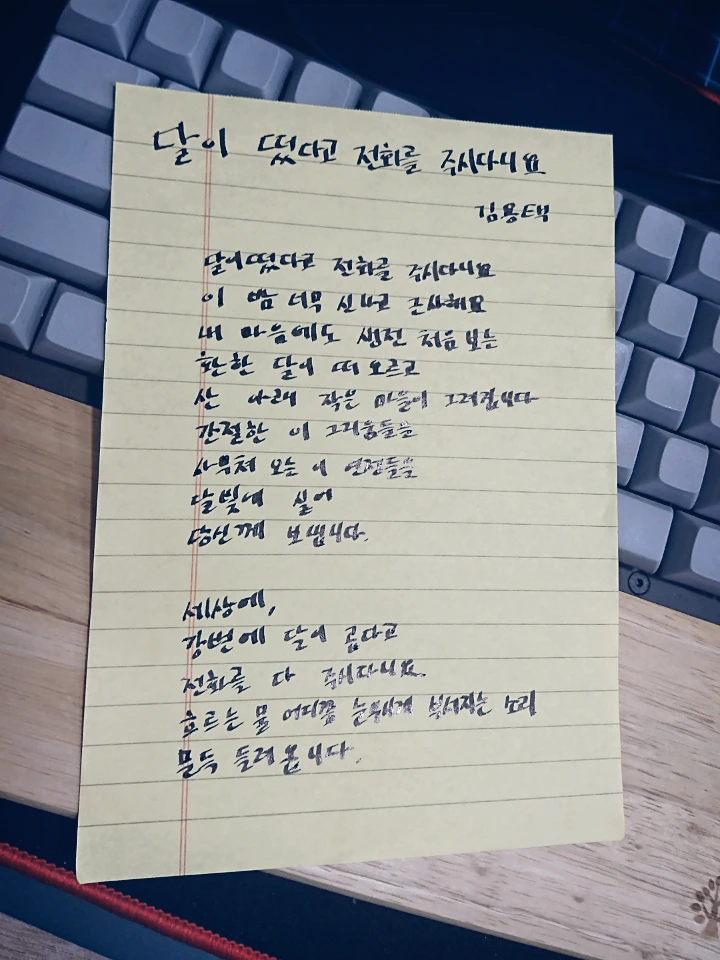 달이 떴다고 전화를 주시다니요
김용택
달이 떴다고 전화를 주시다니요
이 밤 너무 신나고 근사해요
내 마음에도 생전 처음 보는
환한 달이 떠오르고
산 아래 작은 마을이 그려집니다
간절한 이 그리움들을
사무쳐 오는 이 연정들을
달빛에 실어
당신께 보냅니다.
세상에,
강변에 달이 곱다고
전화를 다 주시다니요.
흐르는 물 어디쯤 눈부시게 부서지는 소리
문득 들려옵니다.